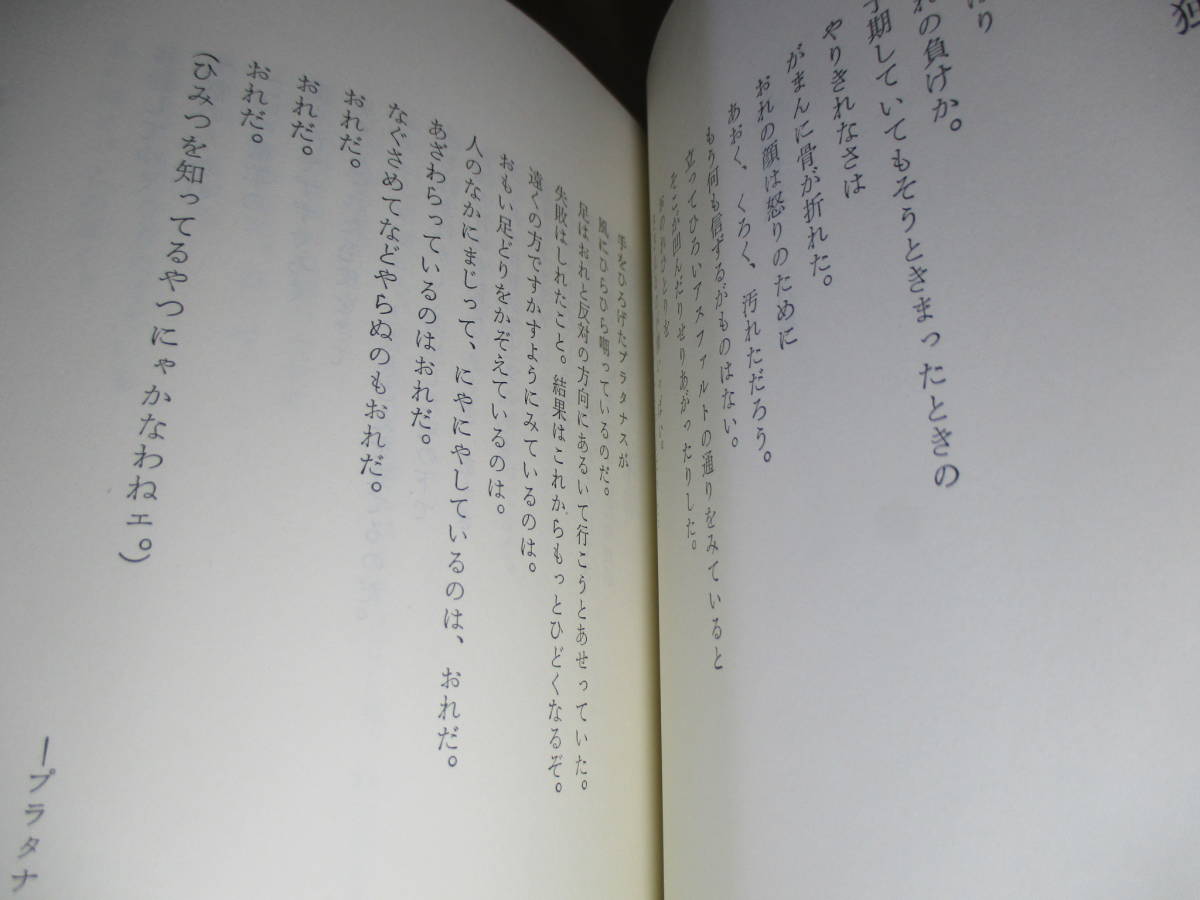 れの負けか。
期していてもそうときまったときの
やりきれなさは
がまんに骨が折れた。
おれの顔は怒りのために
あおく、くろく、汚れただろう。
もう何も信ずるがものはない。
立ってひろいアスファルトの通りをみていると
をこが凹んだりせりあがったりした。
手をひろげたプラタナスが
風にひらひら嘲っているのだ。
足はおれと反対の方向にあるいて行こうとあせっていた。
失敗はしれたこと。結果はこれからもっとひどくなるぞ。
遠くの方ですかすようにみているのは。
おもい足どりをかぞえているのは。
人のなかにまじって、にやにやしているのは、おれだ。
あざわらっているのはおれだ。
なぐさめてなどやらぬのもおれだ。
おれだ。
おれだ。
おれだ。
(ひみつを知ってるやつにゃかなわねェ。)
ープラタナ